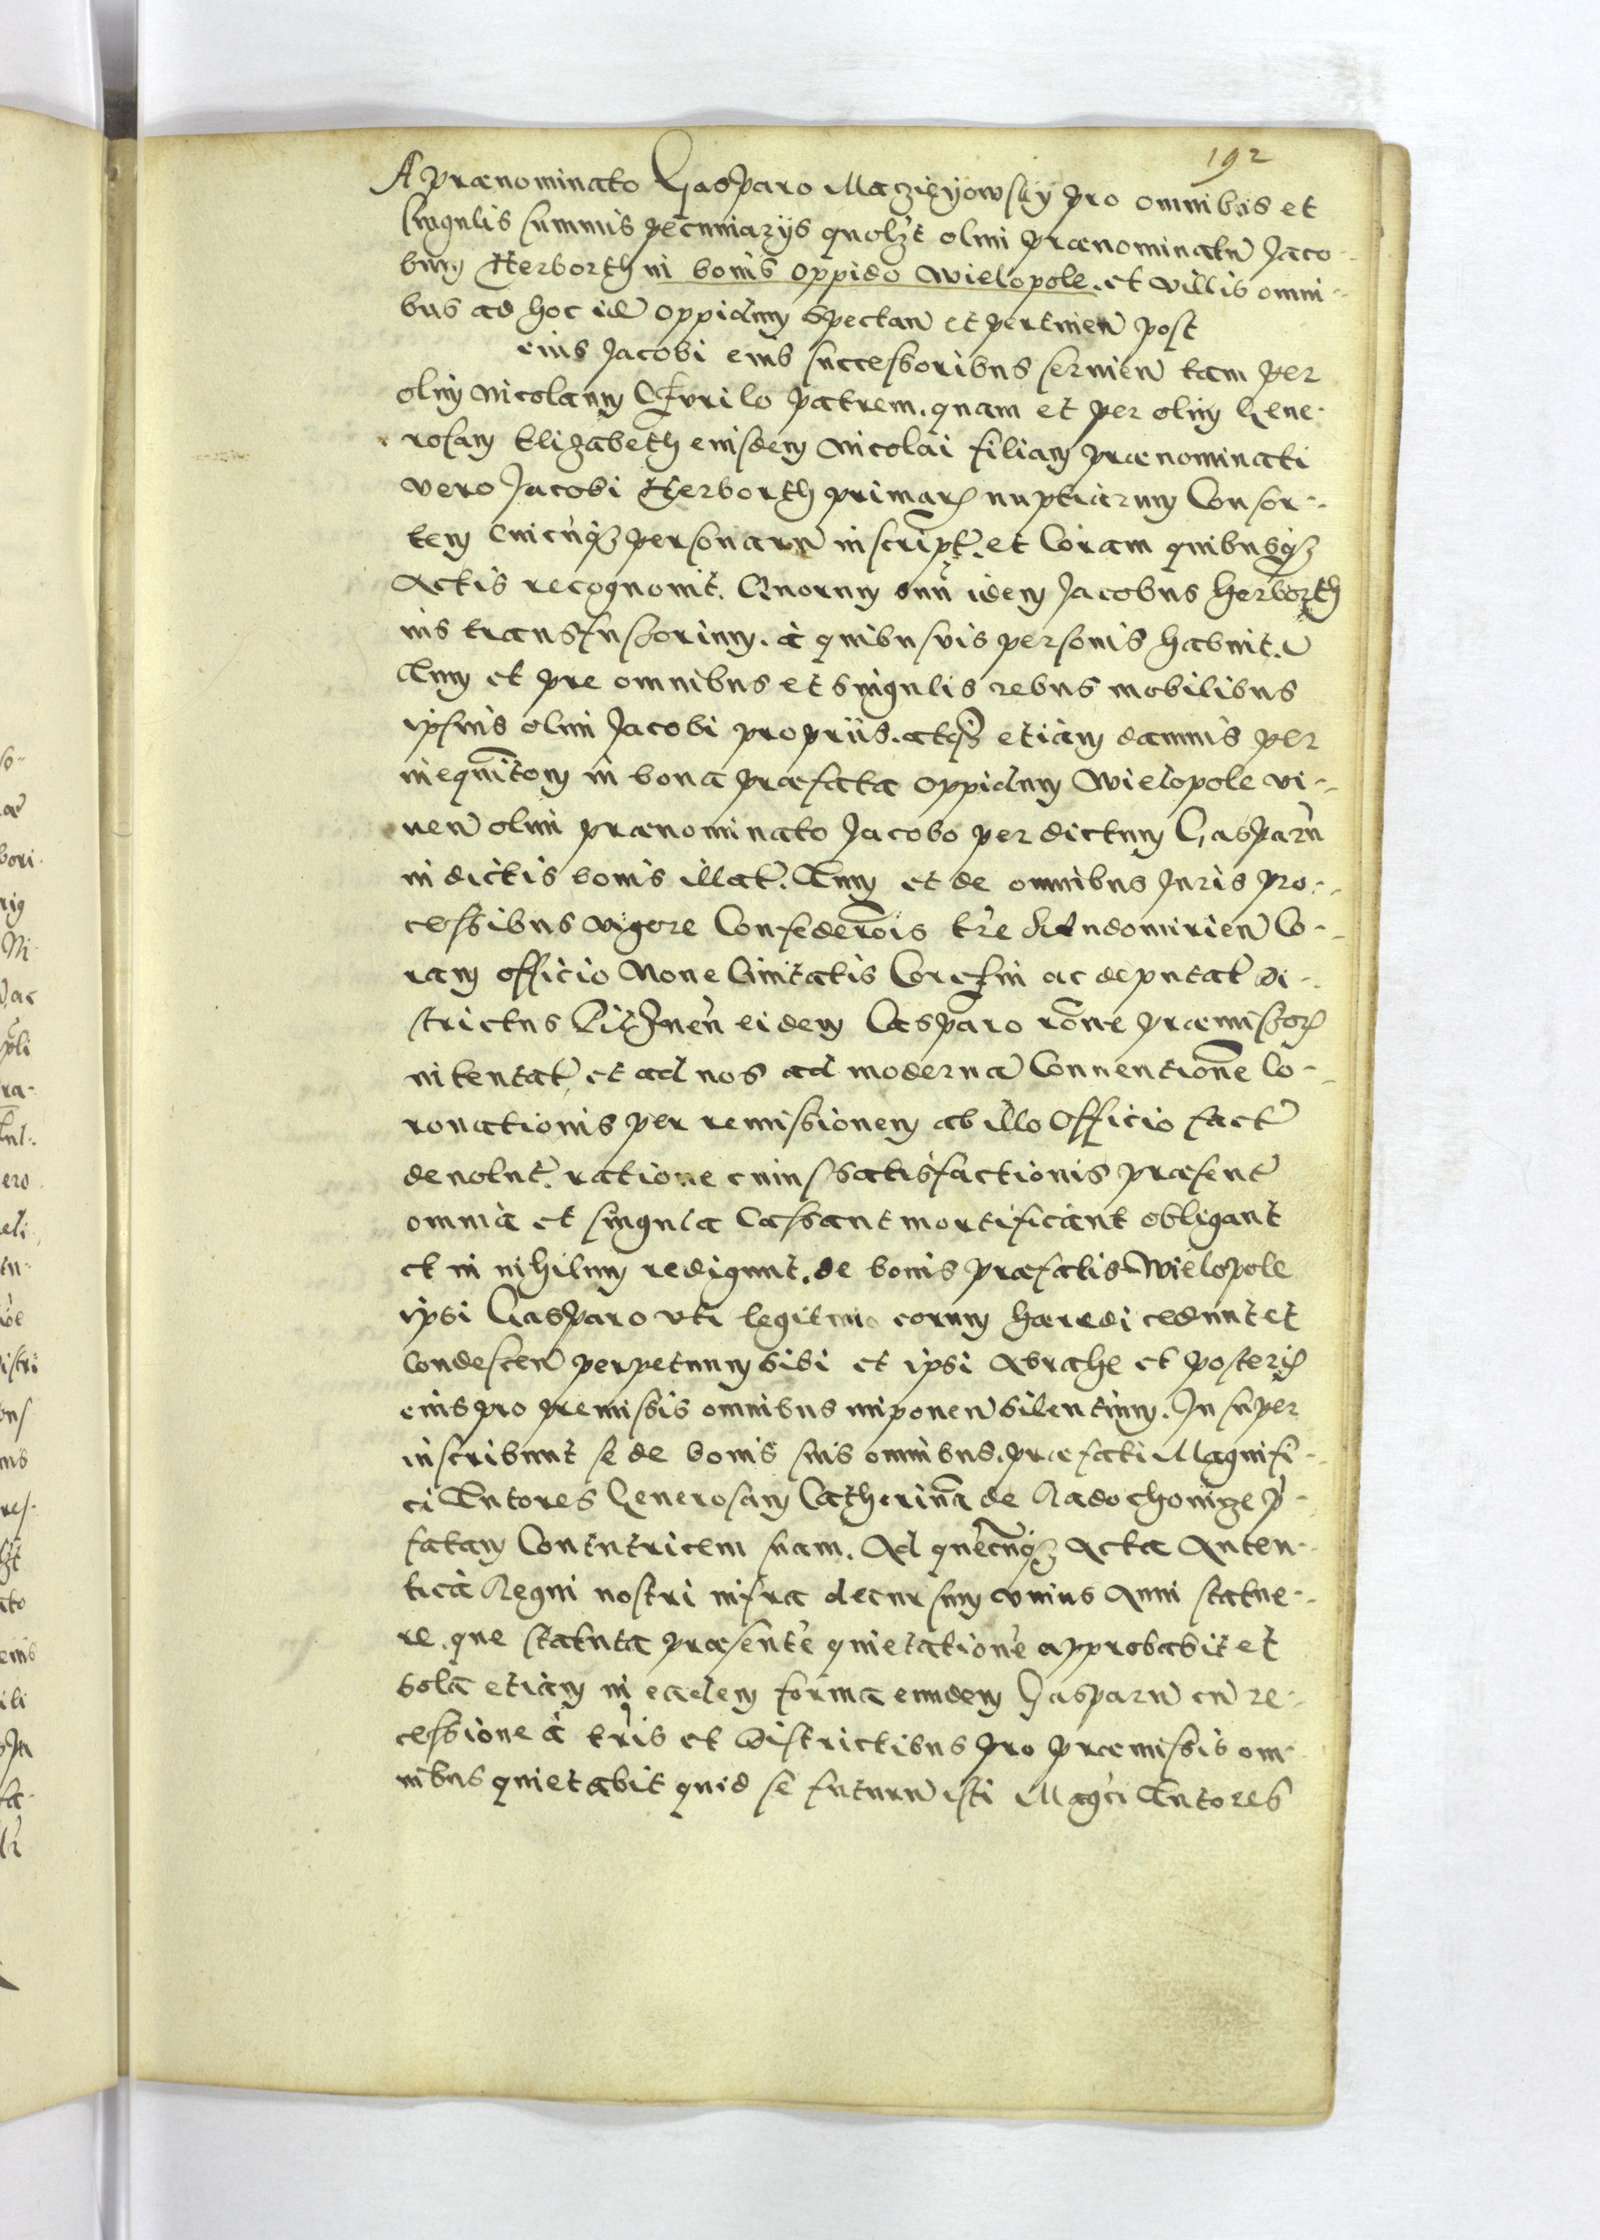 192
A prænominato Gasparo Maczieyowsky pro omnibus et
singulis summis pecuniarÿs quolzt olim prænominatū Jaco-
bum Herborth in bonis oppido Wielopole et villis omni-
bus ad hoc idē oppidum spectan̄ et pertinen̄ post
eius Jacobi eius successoribus servien̄ tam per
olim Nicolaum patrem, quam et per olim Gene-
rosam Elizabeth eiusdem Nicolai filiam prænominati
vero Jacobi Herborth primar nuptiarum Consor-
tem Cuicūq personarū inscript. et Coram quibusq
Actis recognovit. Quorum idem Jacobus Herborth
ius transfusorium à quibusvis personis habuit.
Tum et pre omnibus et singulis rebus mobilibus
ipsius olim Jacobi propriis atq etiam damnis per
inequitōm in bona præfata oppidum Wielopole
olim prænominato Jacobo per dictum Gasparū
in dictis bonis illat. Tum et de omnibus Juris pro-
cessibus vigore Confederōis trē Sandomirien̄ Co-
ram officio None Civitatis Corcžin ac deputat Di-
strictus eidem Casparo rōne præmissor
intentat et ad nos ad modernā Conventione Co-
ronationis per remissionem ab illo Officio fact
devolut. ratione cuius satisfactionis præsent
omnia et singula Cassant mortificant obligant
et in nihilum redigunt, de bonis præfatis Wielopole
ipsi Gasparo uti legitimo eorum hæredi cedunt et
Condescen̄ perpetuum sibi et ipsi Abrahe et posteris
eius pro premissis omnibus imponen̄ silentium. Insuper
inscribunt se de bonis suis omnibus præfati Magnifi-
ci Tutores Generosam Catherinā de Radochonicze p̄-
fatam Contutricem suam. Ad quecunq Acta Auten-
tica Regni nostri infra decursum unius Anni statue-
re, que statuta præsente quietatione approbabit et
sola etiam in eadem forma eundem Gasparū cū re-
cessione à tris et Districtibus pro præmissis om-
nibus quietabit quid se futurū isti Magci Tutores